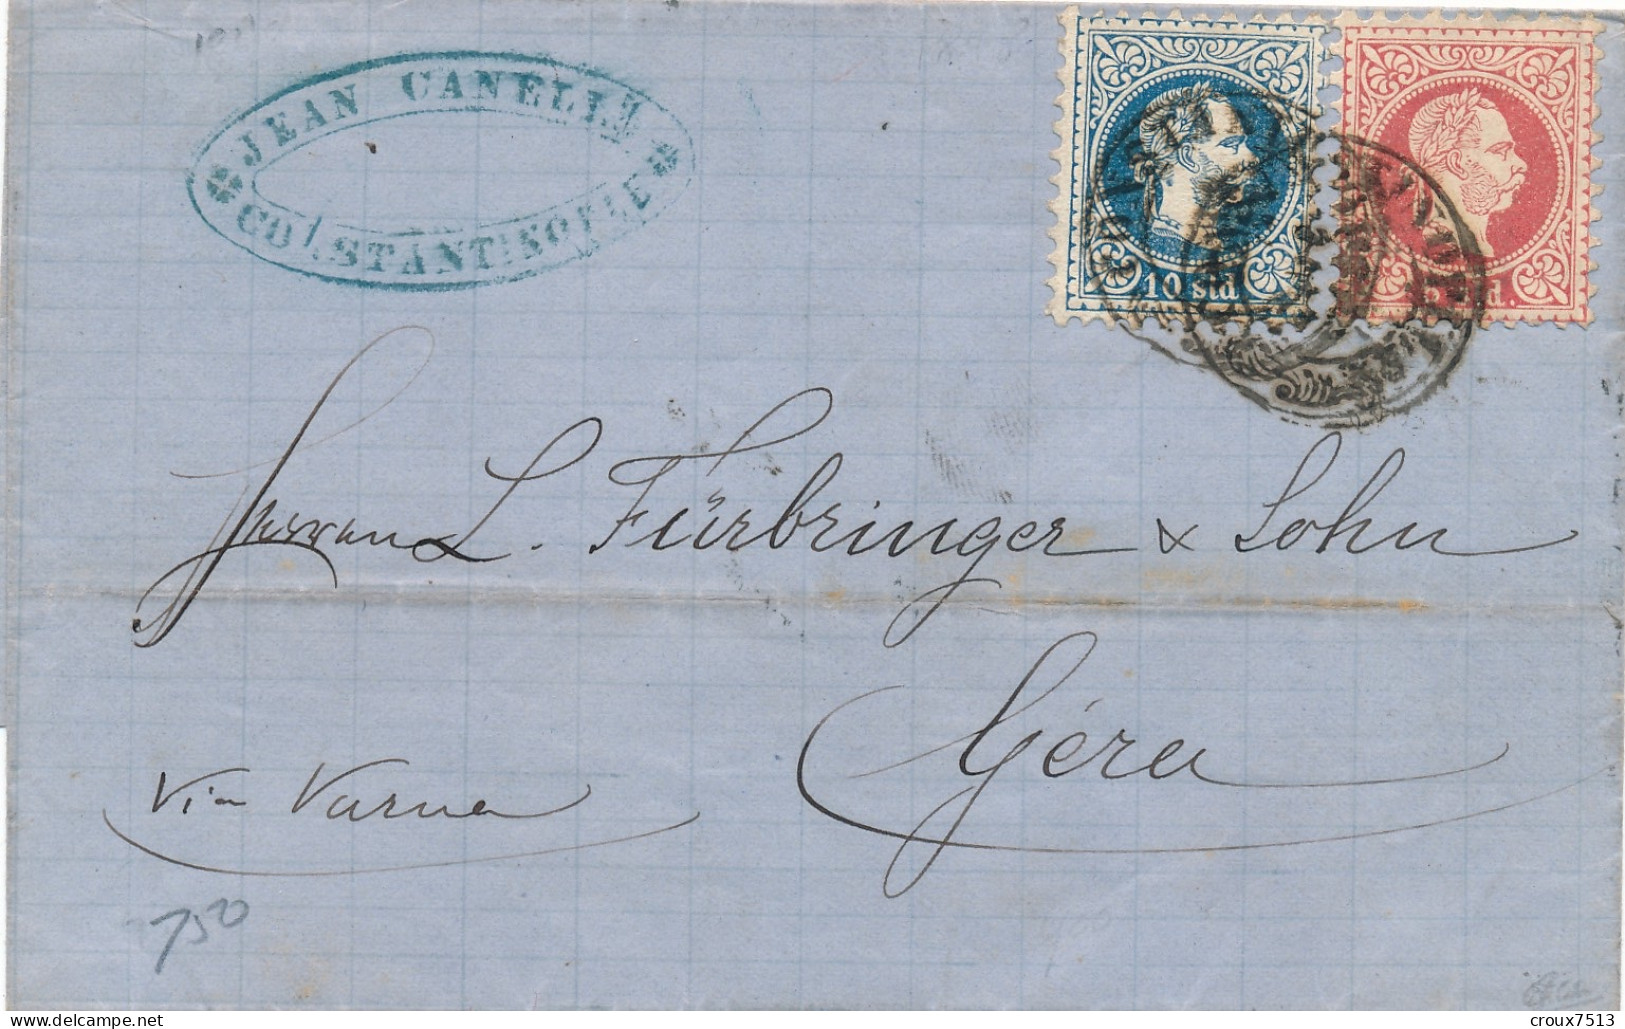 JEAN CANELLE
CONSTANTINOPLE
10 sld
5 sld.
Herren L. Fürbringer & Sohn
Géra
Via Varna
750
croux7513